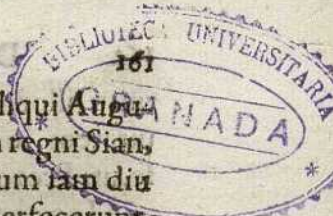 BIBLIOTECA UNIVERSITARIA
161
GRANADA
liqui Augu-
regni Sian,
um iam diu